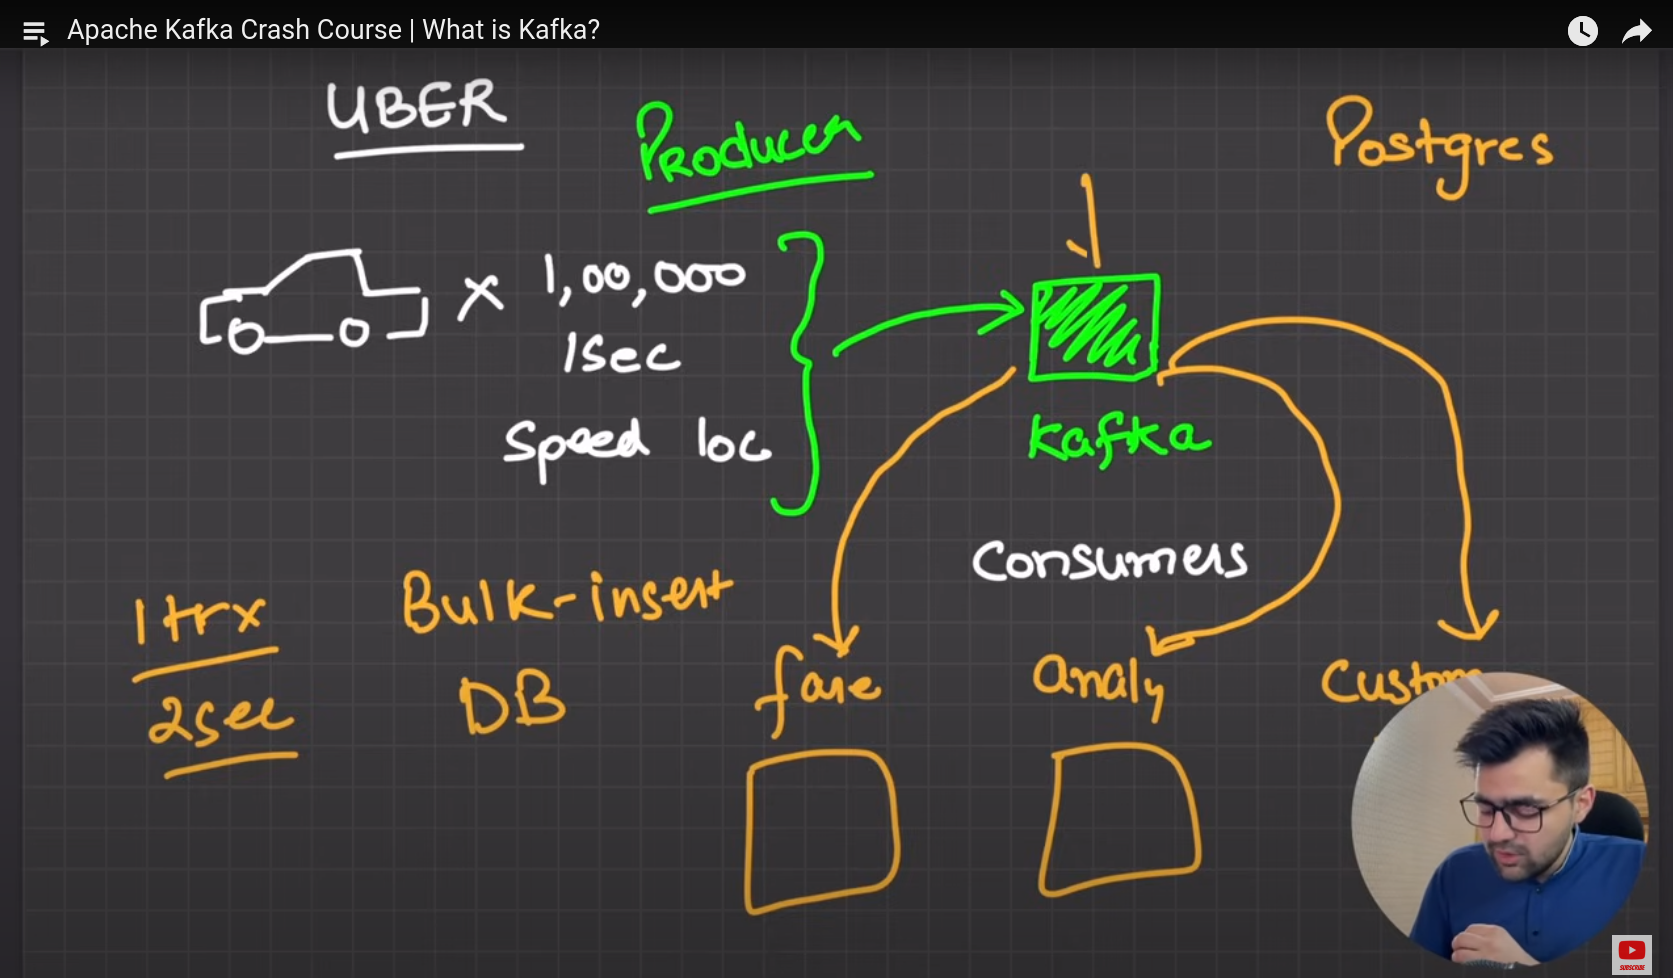 Apache Kafka Crash Course | What is Kafka?
UBER
Producer
Postgres
x 1,00,000
1sec
Speed loc
Kafka
Consumers
1 trx
2sec
Bulk-insert
DB
fare
analy
SUBSCRIBE